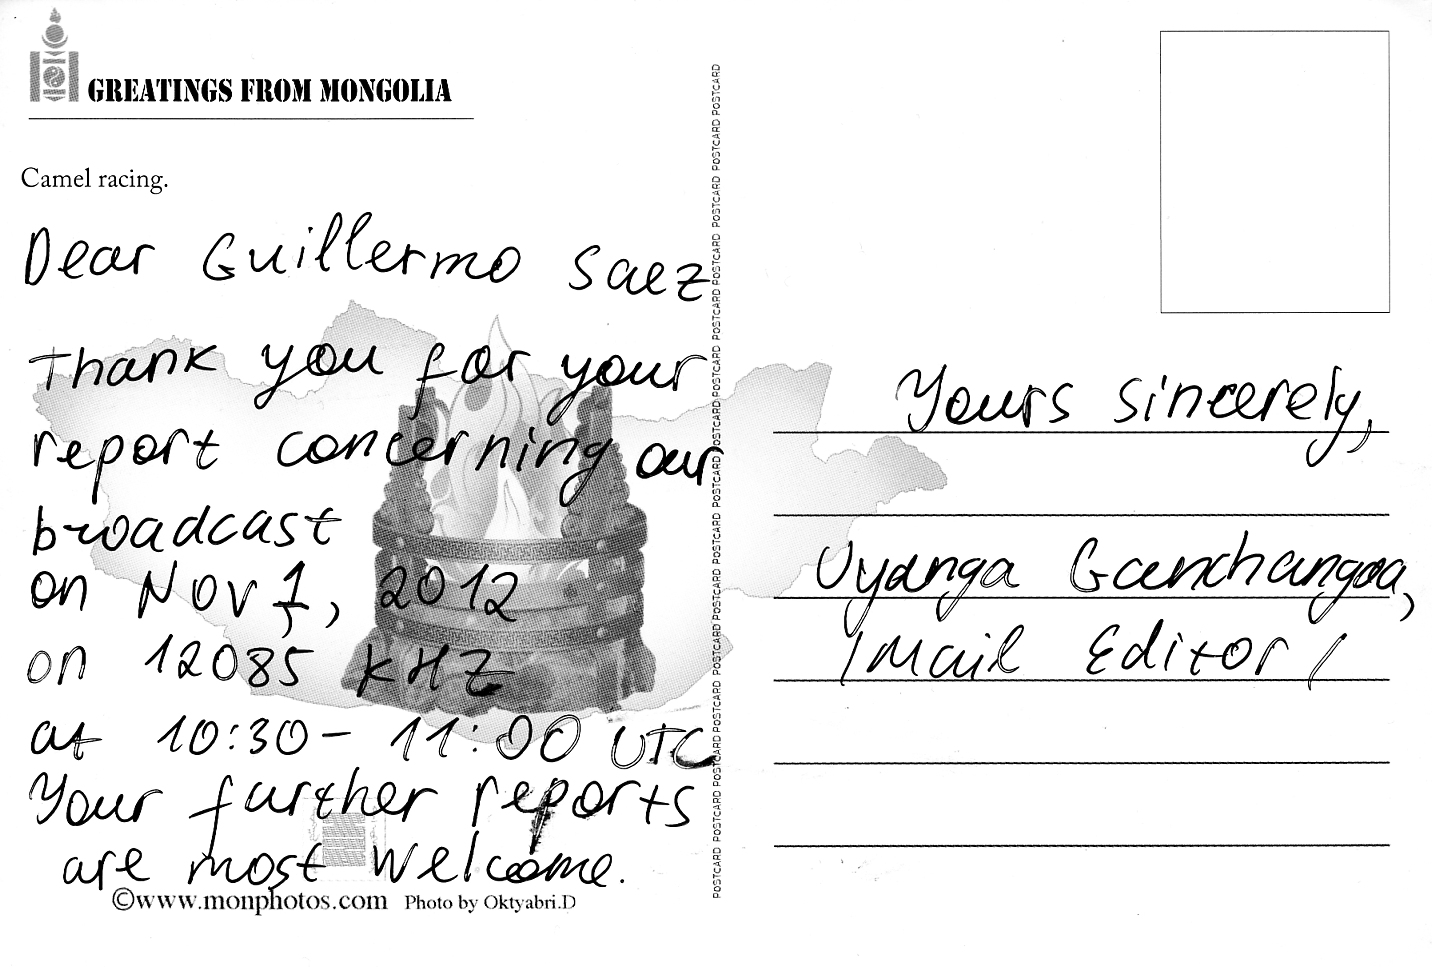 GREATINGS FROM MONGOLIA
Camel racing.
Dear Guillermo Saez
Thank you for your
report concerning our
broadcast
on Nov 1, 2012
on 12085 kHz
at 10:30 - 11:00 UTC
Your further reports
are most welcome.
©www.monphotos.com Photo by Oktyabri.D
POSTCARD POSTCARD POSTCARD POSTCARD POSTCARD POSTCARD POSTCARD POSTCARD POSTCARD POSTCARD POSTCARD POSTCARD POSTCARD POSTCARD POSTCARD
Yours sincerely,
Uyanga Ganchangaa,
/Mail Editor/